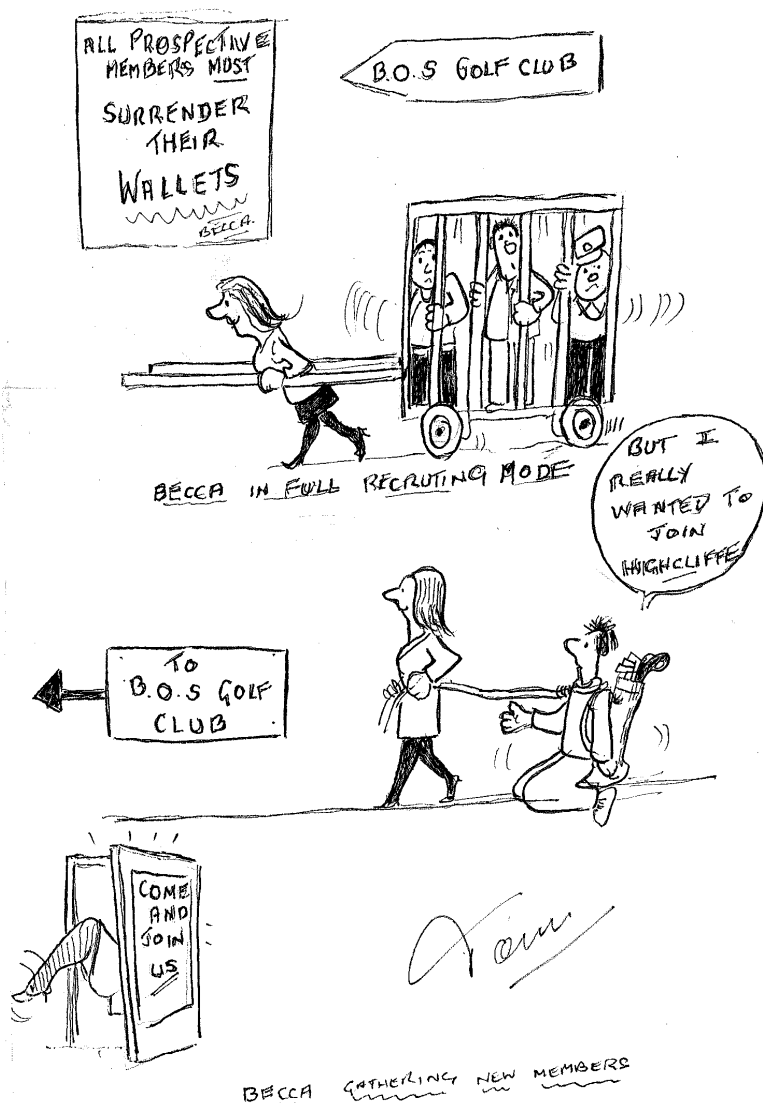 ALL PROSPECTIVE
MEMBERS MUST
SURRENDER
THEIR
WALLETS
BECCA.
B.O.S GOLF CLUB
BECCA IN FULL RECRUTING MODE
BUT I
REALLY
WANTED TO
JOIN
HIGHCLIFFE
TO
B.O.S GOLF
CLUB
COME
AND
JOIN
US
BECCA GATHERING NEW MEMBERS